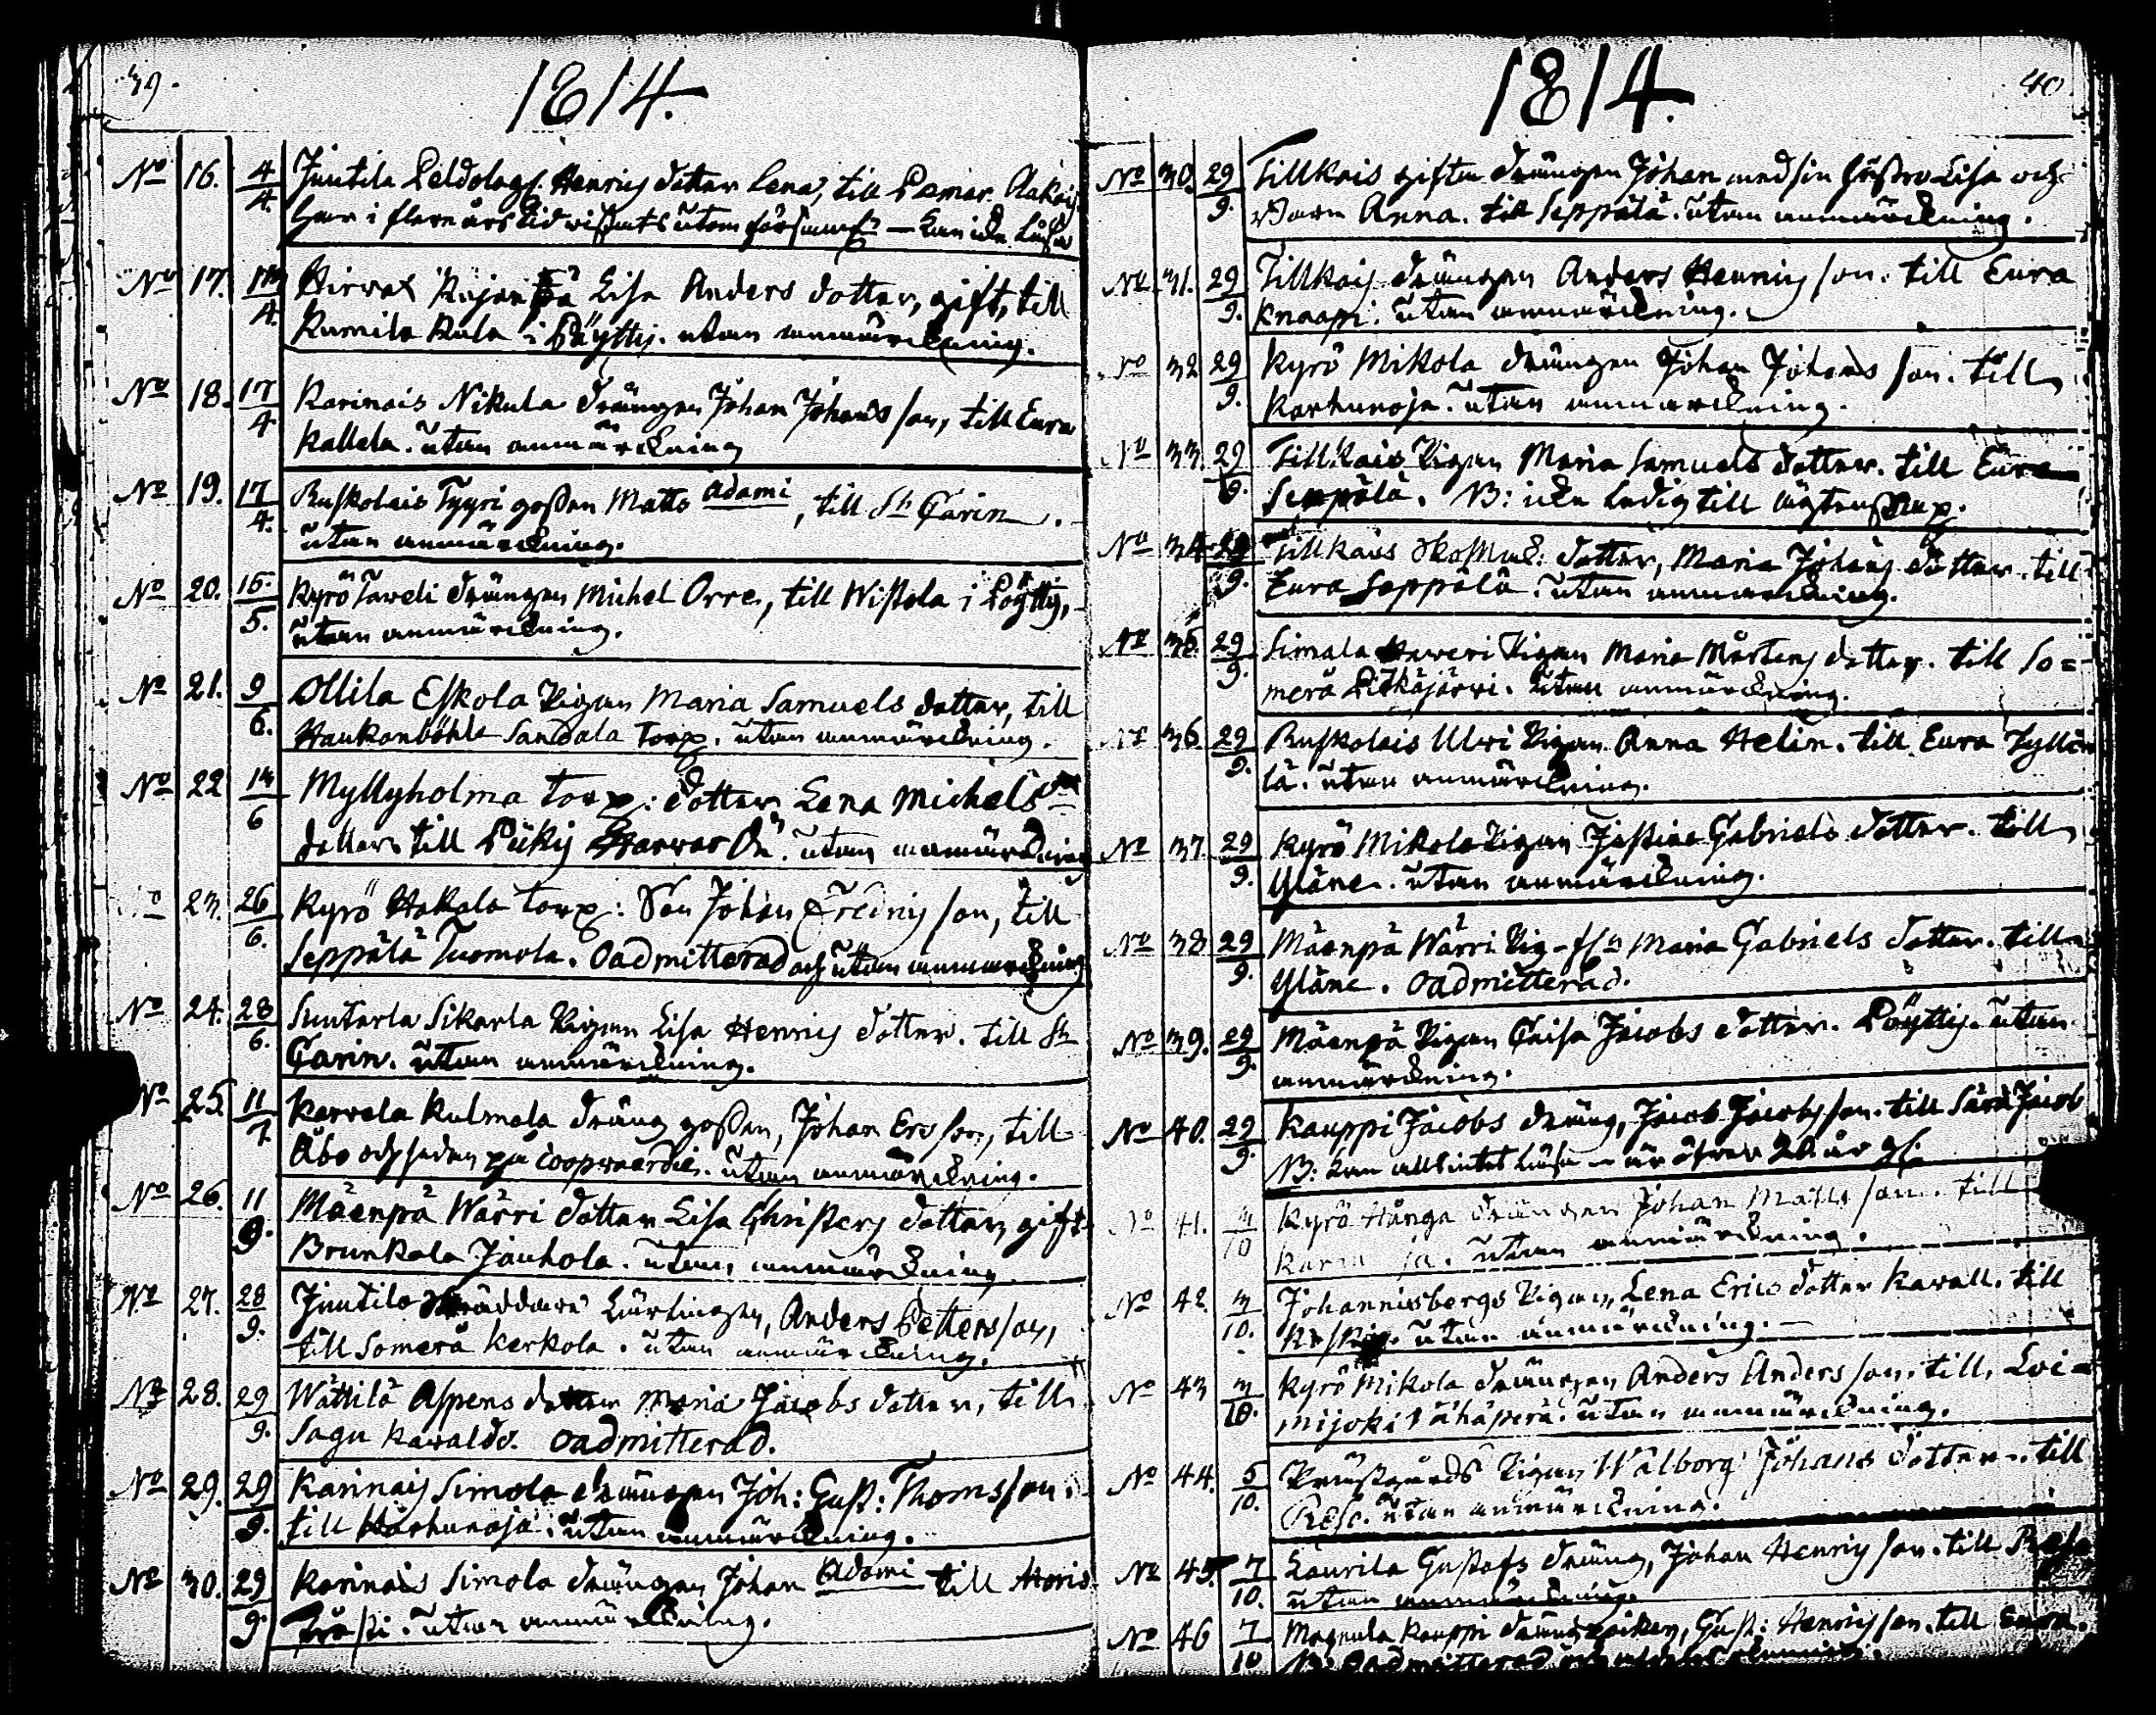 39.
1814.
No 16. 4/4. Juutila Peldolags. Henrics dotter Lena, till Pemar
har i flere års tid wistats utom församl: — kan icke läsa
No 17. 17/4. Hirvax Rajanpä Lisa Anders dotter, gift, till
Kumila Kula i Pöyttis. utan anmärckning.
No 18. 17/4 Karinais Nikula drängen Johan Johans son, till Eura
Kallela. utan anmärckning
No 19. 17/4. Ruskolais Tyyri gossen Matts Adami, till St Carin.
utan anmärckning.
No 20. 15/5. Kyrö Taweli drängen Michel Orre, till Wistola i Pöyttis,
utan anmärckning.
No 21. 9/6. Ollila Eskola Pigan Maria Samuels dotter, till
Haukanböhle Sandala Torp. utan anmärckning.
No 22 14/6 Myllyholma Torp: dotter Lena Michels
dotter till Piikis Harvar Ön. utan anmärckning
No 23. 26/6. Kyrö Hakala Torp: Son Johan Fredrics son, till
Seppälä Tuomola. Oadmitterad och utan anmärckning
No 24. 28/6. Suutarla Sikarla Pigan Lisa Henrics dotter. till St
Carin. utan anmärckning.
No 25. 11/7. Karvela Kulmala dräng gossen, Johan Ers son, till
Åbo och sedan på coopvaerdie. utan anmärckning.
No 26. 11/9. Mäenpä Wärri dotter Lisa Christers dotter, gift
Brunkala Jauhola. utan anmärckning
No 27. 28/9. Juutila Skräddare Lärlingen, Anders Petters son,
till Somerå Kerkola. utan anmärckning.
No 28. 29/9. Wättilä Aspens dotter Maria Jacobs dotter, till
Sagu Karaldo. oadmitterad.
No 29. 29/9. Karinais Simola drängen Joh: Gust: Thoms son.
till Karhunoja. utan anmärckning.
No 30. 29/9. Karinais Simola drängen Johan Adami till
utan anmärckning.
1814.
40
No 30. 29/9. Tillkais gifte drängen Johan med sin hustro Lisa och
Barn Anna. till Seppälä. utan anmärckning.
No 31. 29/9. Tillkais drängen Anders Henrics son. till Eura
Knaapi. utan anmärckning.
No 32 29/9. Kyrö Mikola drängen Johan Johans son. till
Karhunoja. utan anmärckning.
No 33. 29/9. Tillkais Pigan Maria Samuels dotter. till Eura
Seppälä. NB: icke ledig till ägtenskap.
No 34 29/9. Tillkais dotter, Maria Johans dotter. till
Eura Seppälä. utan anmärckning.
No 35. 29/9. Simala Haweri Pigan Maria Mårtens dotter. till So=
merå Pitkäjärwi. utan anmärckning.
No 36. 29/9. Ruskolais Ulvi Pigan Anna Helin. till Eura Tyllin
lä. utan anmärckning.
No 37. 29/9. Kyrö Mikola Pigan Justina Gabriels dotter. till
Yläne. utan anmärckning.
No 38 29/9. Mäenpä Wärri Pig-fln Maria Gabriels dotter. till
Yläne. oadmitterad.
No 39. 29/9. Mäenpä Pigan Caisa Jacobs dotter. Pöyttis. utan
anmärckning.
No 40. 29/9. Kauppi Jacobs dräng, Jacob Jacobs son. till
NB: kan alls intet läsa — är öfwer 20 år gl.
No 41. 3/10 Kyrö Hånga drängen Johan Matts son. till
utan anmärckning.
No 42. 3/10. Johannisbergs Pigan, Lena Erics dotter Kawall. till
utan anmärckning. —
No 43 3/10. Kyrö Mikola drängen Anders Anders son. till Loi=
mijoki Vähäperä. utan anmärckning.
No 44. 5/10. Prästgårds Pigan Walborg Johans dotter. till
Reso. utan anmärckning.
No 45. 7/10. Laurila Gustafs dräng, Johan Henrics son. till Reso
utan anmärckning.
No 46 7/10 Magnula Kauppi drängpoiken, Gust: Henrics son. till Eura.
NB: Oadmitterad